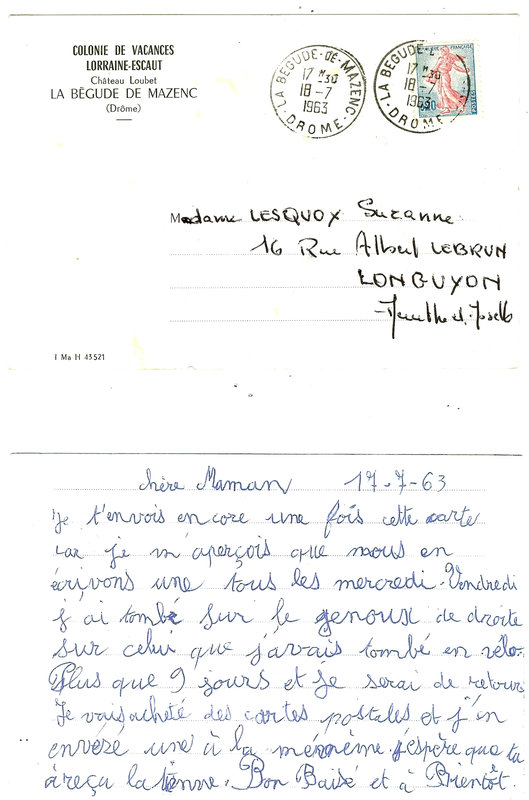 COLONIE DE VACANCES
LORRAINE-ESCAUT
Château Loubet
LA BÉGUDE DE MAZENC
(Drôme)
LA BÉGUDE-DE-MAZENC
17 H 30
18-7
1963
DROME
LA BÉGUDE-D
17 H 30
18-7
1963
DROME
Madame LESQUOX Suzanne
16 Rue Albert LEBRUN
LONGUYON
Meurthe et Moselle
I Ma H 43521
chère Maman 17-7-63
Je t'envois encore une fois cette carte
car je m'aperçois que nous en
écrivons une tous les mercredi. Vendredi
j'ai tombé sur le genoux de droite
sur celui que j'avais tombé en vélo.
Plus que 9 jours et je serai de retour
Je vais acheté des cartes postales et j'en
envéré une à la mémène. j'espère que ta
areçu la tienne. Bon Baisé et à Bientôt.